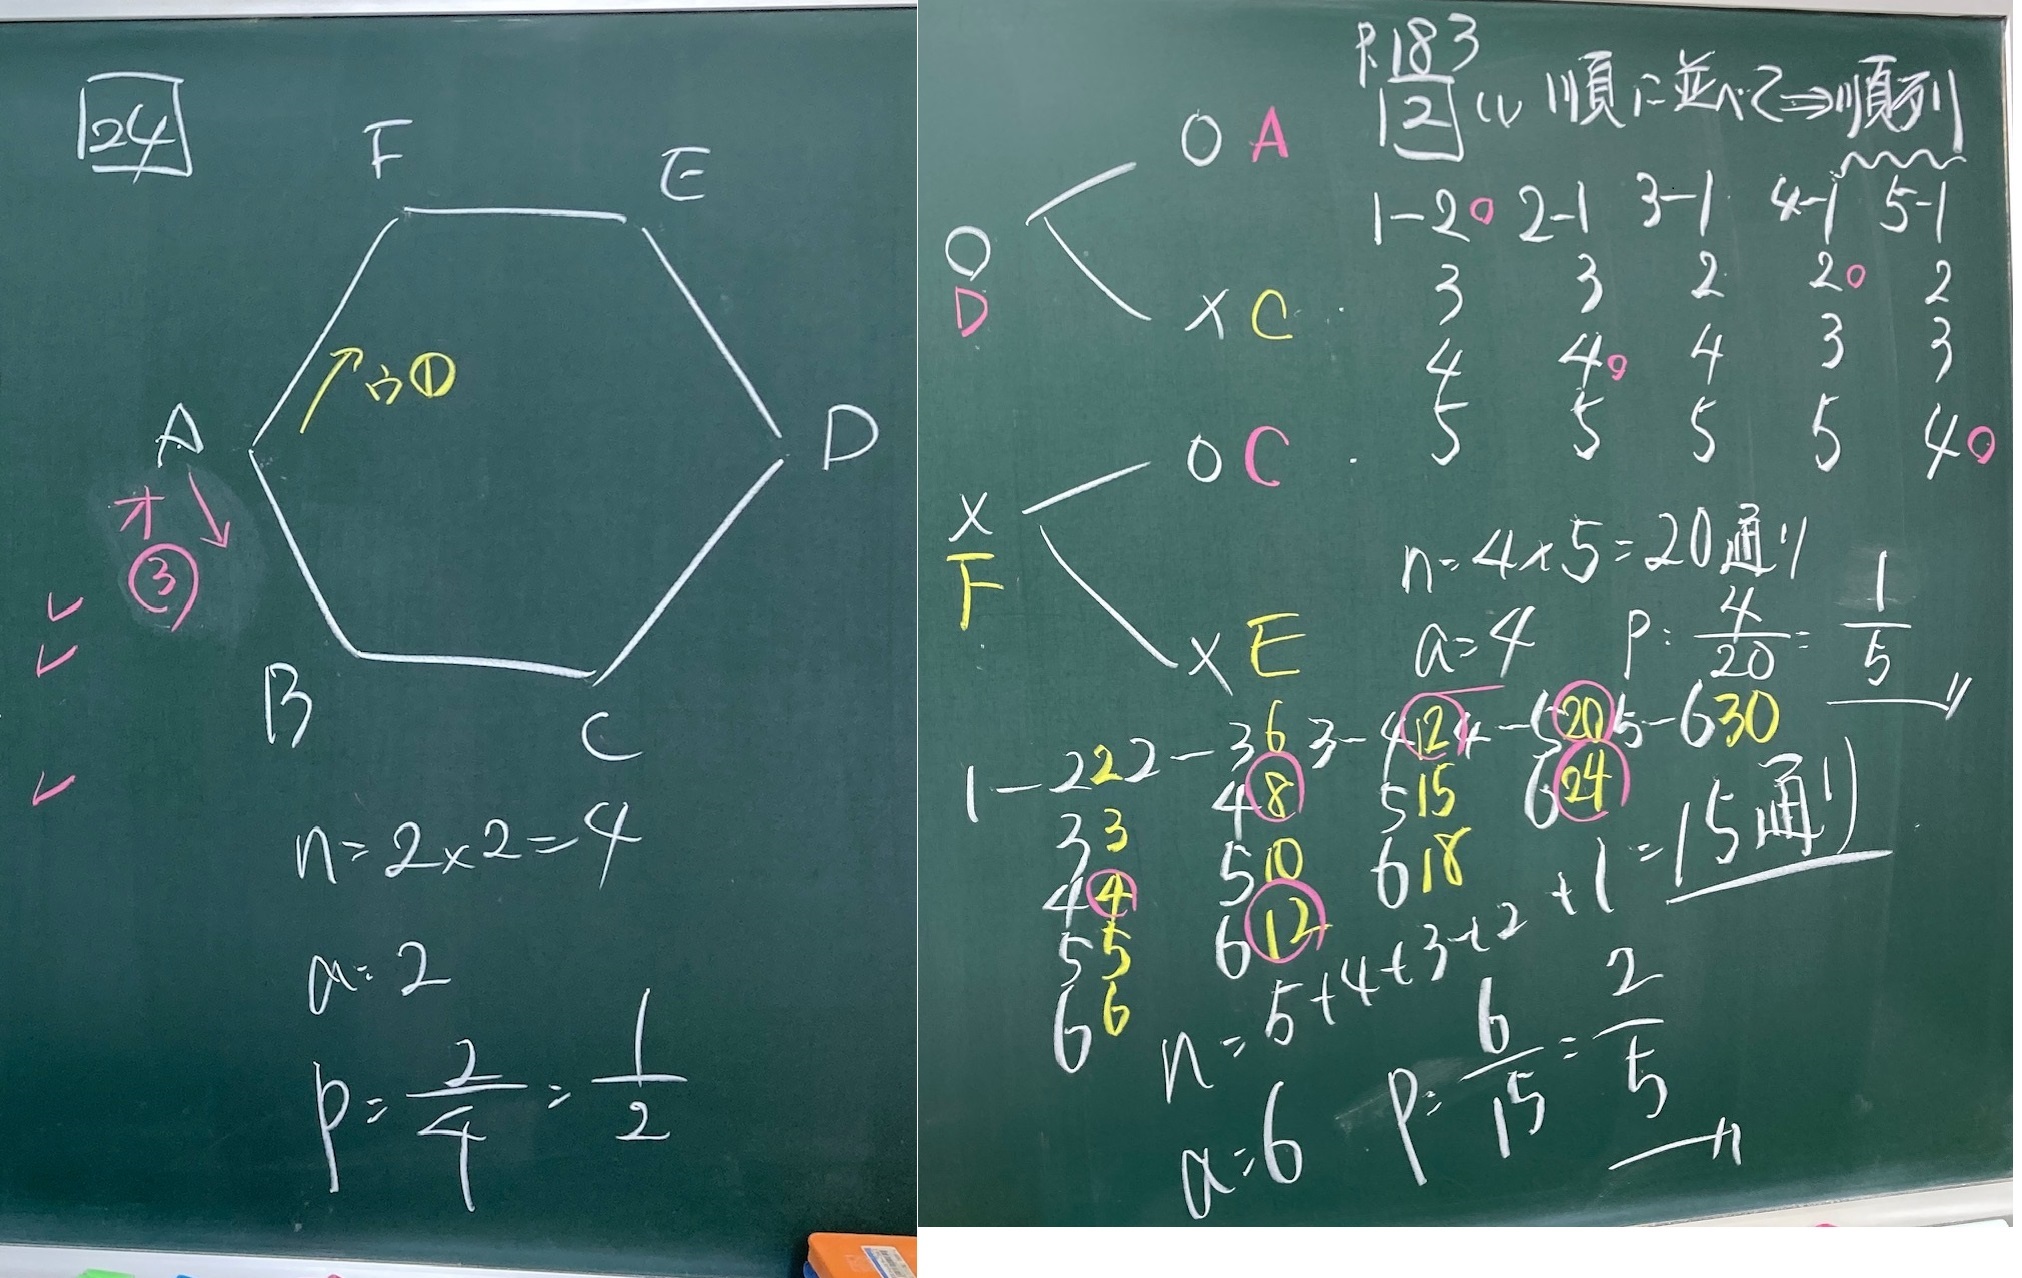 24
F
E
A
ウ①
D
オ
③
B
C
n=2×2=4
a=2
p=2/4=1/2
P.183
12 (1) 順に並べて⇒順列
○ A
○
D
× C
○ C
×
F
× E
1-2○ 2-1 3-1 4-1 5-1
3 3 2 2○ 2
4 4○ 4 3 3
5 5 5 5 4○
n=4×5=20通り
a=4 p=4/20=1/5
1-2 2 2-3 6 3-4 12 4-5 20 5-6 30
3 3 4 8 5 15 6 24
4 4 5 10 6 18
5 5 6 12
6 6
n=5+4+3+2+1=15通り
a=6 p=6/15=2/5